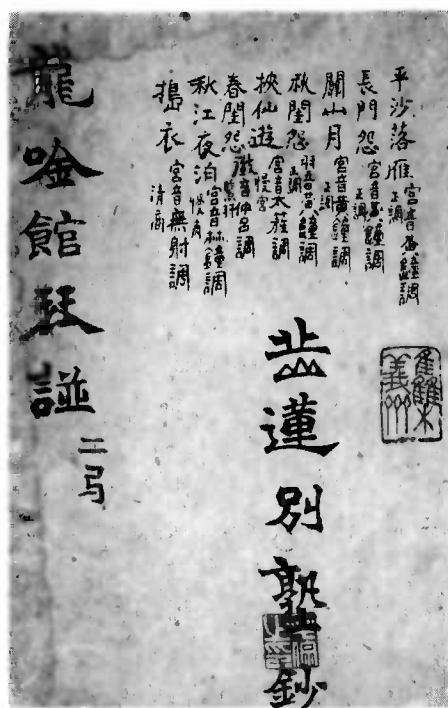 平沙落雁 宮音黃鐘調 正調
長門怨 宮音黃鐘調 正調
關山月 宮音黃鐘調 正調
秋閨怨 羽音黃鐘調 正調
挾仙遊 宮音太蔟調 慢宮
春閨怨 徵音仲呂調 緊羽
秋江夜泊 宮音林鐘調 慢角
搗衣 宮音無射調 清商
岳蓮別塾鈔
龍唫館琴譜
二弓